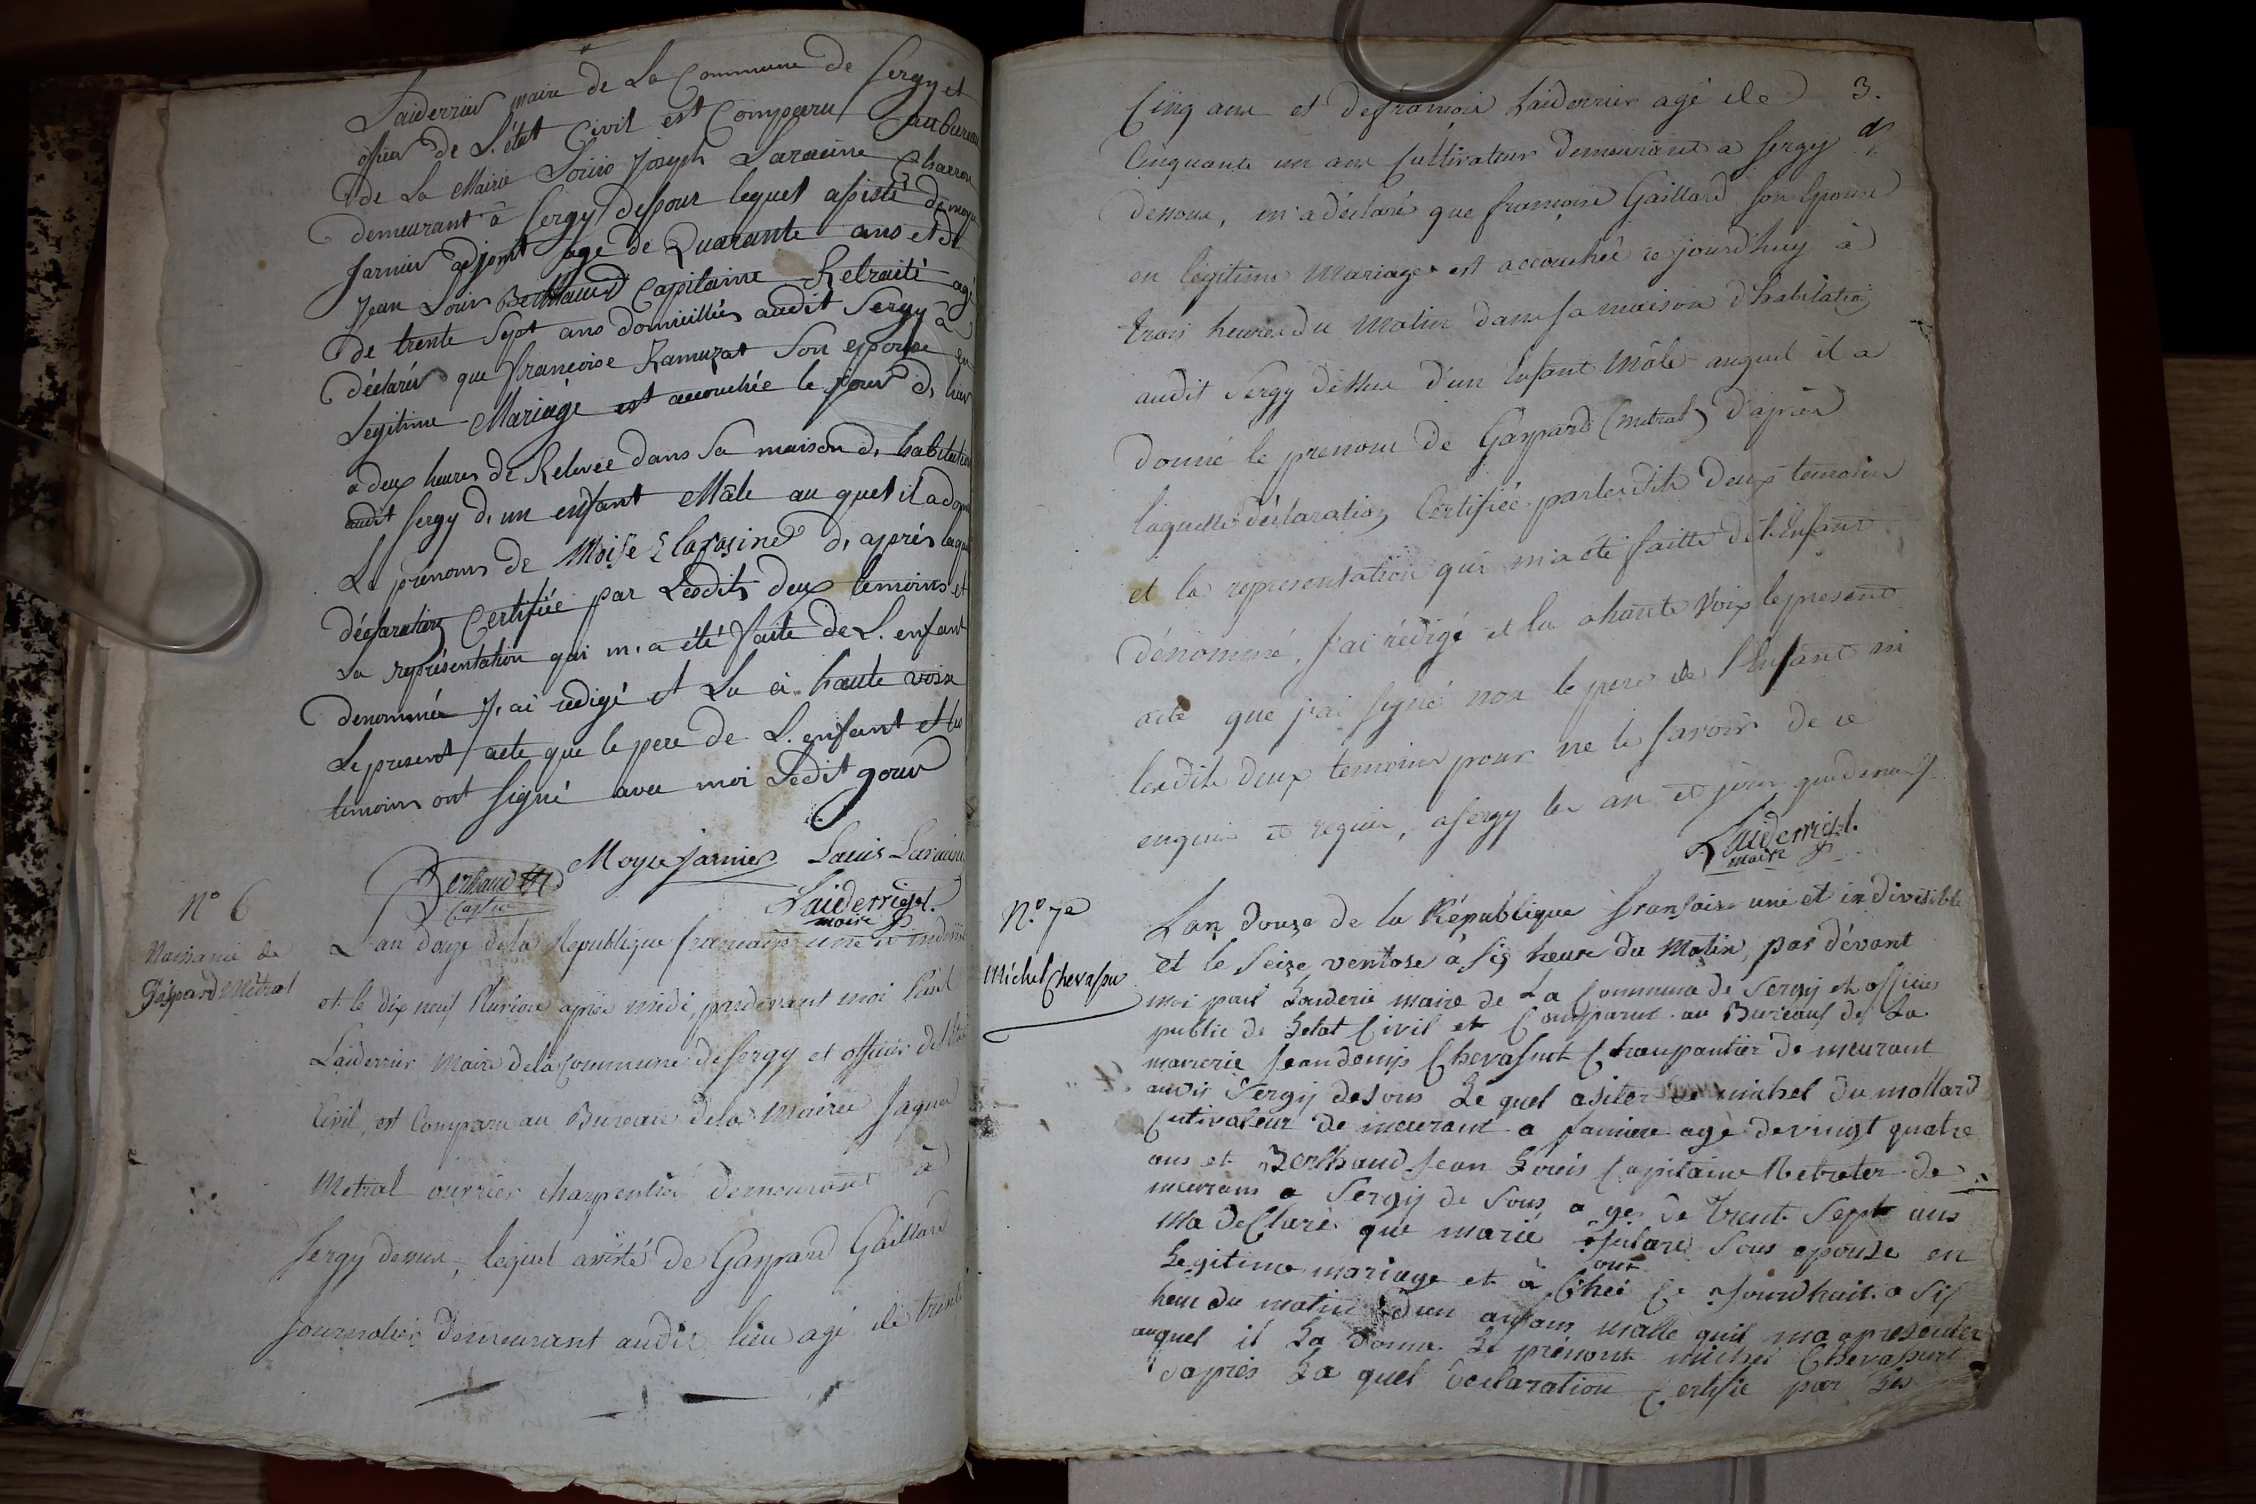 Laiderrier maire de La Commune de Sergy et
officier de L'état Civil est Comparu au bureau
de La Mairie Louis Joseph Laracine Charron
demeurant à Sergy dessous lequel assisté de moyse
Jarnier adjoint age de Quarante ans et de
Jean Louis Berthaud Capitaine Retraité agé
de trente Sept ans domicilliés audit Sergy à
déclaré que françoise Ramuzat Son epouse en
Legitime Mariage est accouchée le jour d, hier
a deux heures de Relevée dans Sa maison d, habitation
audit Sergy d, un enfant Mâle au quel il a donné
Le prenoms de Moise Laracine d, après laquelle
déclaration Certifiée par Lesdits deux temoins et
La représentation qui m, a été faite de L. enfant
denommée J, ai redigé et Lu à haute voix
Le present acte que le pere de L. enfant et les
temoins ont Signé avec moi Ledit jour
Moyse Jarnier Louis Laracine
Berthaud
Capne
Laiderrier
maire
N° 6
Naissance de
Gaspard Métral
L'an douze de la Republique française une et indivisible
et le dix neuf Pluviose après midi, pardevant moi Paul
Laiderrier Maire de la Commune de Sergy et officier de l'état
Civil, est Comparu au Bureau de la Mairie Jaques
Metral ouvrier charpentier demeurant à
Sergy dessus, lequel assisté de Gaspard Gaillard
journalier demeurant audit lieu agé de trente
3.
Cinq ans et de françois Laiderrier agé de
Cinquante un ans Cultivateur demeurant a Sergy
dessous, m'a déclaré que françoise Gaillard son Epouse
en légitime Mariage est accouchée ce jourd'huy à
trois heures du Matin dans sa maison d'habitation
audit Sergy dessus d'un Enfant Mâle auquel il a
donné le prenom de Gaspard (metral) d'après
laquelle déclaration Certifiée par lesdits deux temoins
et la representation qui m'a été faitte de l'Enfant
dénommé, J'ai rédigé et lu a haute Voix le present
acte que j'ai signé non le pere de l'Enfant ni
lesdits deux temoins pour ne le savoir de ce
enquis et requis, a Sergy les an et jour que dessus
Laiderrier
maire
N.° 7e
Michel Chevassu
Lan douze de la République fransaise une et indivisible
et le Seize ventose à Sis heure du Matin, par dévant
moi paul Laiderie maire de La Commune de Sergy et officier
public de Letat Civil et Comparut au Bureaus de La
mairerie Jean denys Chevassut Charpantier de meurant
audit Sergy desous Le quel asister de michel du mollard
Cultivateur de meurant a faniere agè de vingt quatre
ans et Berthaud Jean Louis Capitaine Retreter de
meurans a Sergy de Sous a ge de Trente Sept ans
Ma declaré que marie Sous epouse en
Legitime mariage et à Couchéé Ce Jourdhuit a Sis
heure du matin dun anfans malle quil ma apresenter
auquel il La donne Le prénont michel Chevassut
dapres La quel declaration Certifie par Les